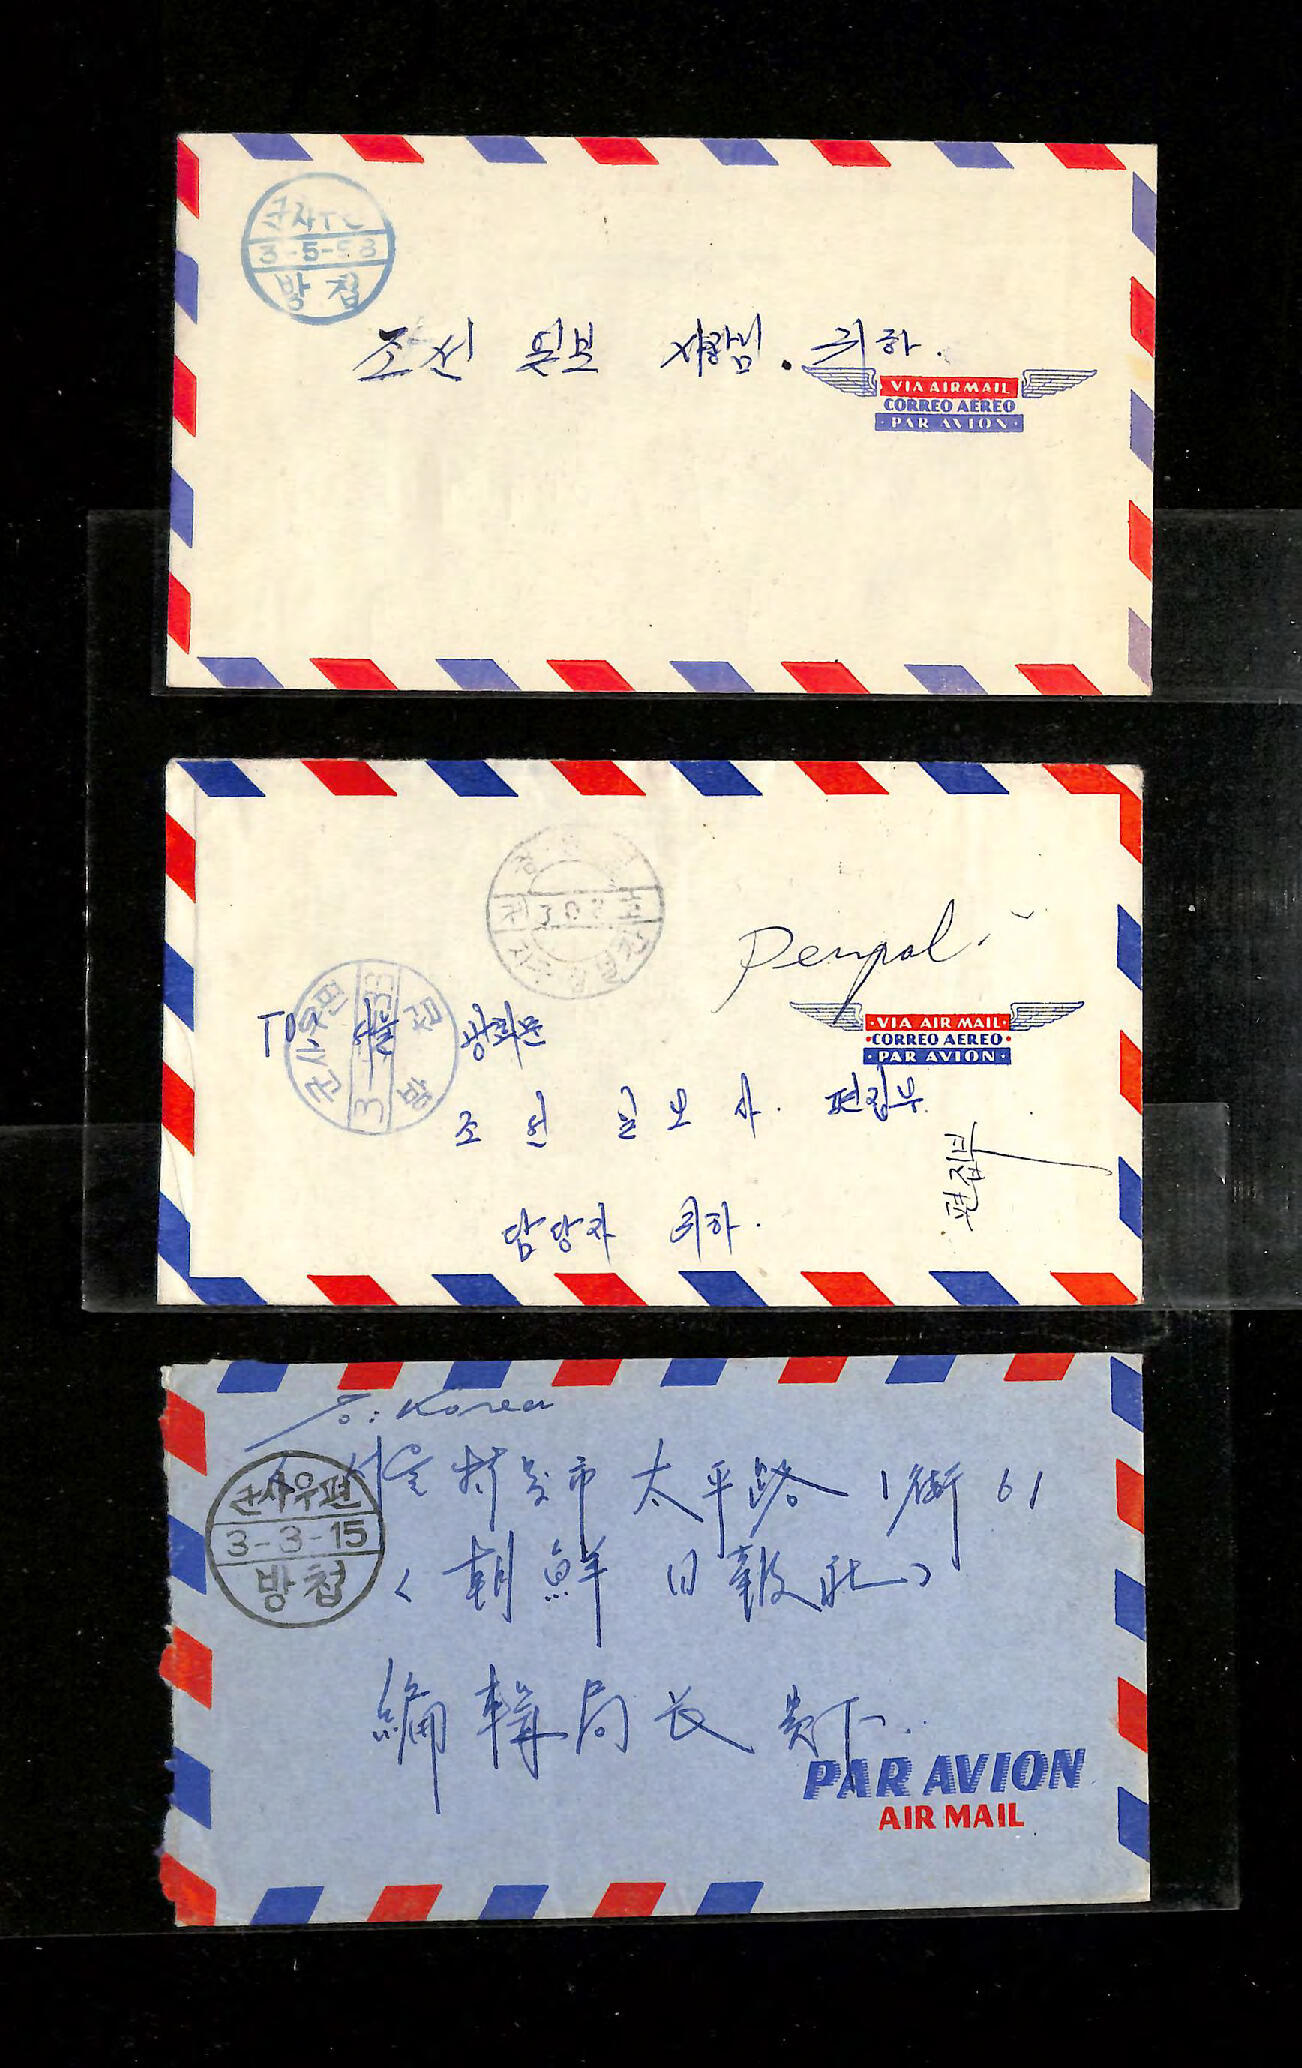 3-5-58
방첩
조선 일보 사장님. 귀하.
VIA AIRMAIL
CORREO AEREO
PAR AVION
Penpal
군사우편
방첩
TO 서울 광화문
VIA AIR MAIL
CORREO AEREO
PAR AVION
조선 일보사. 편집부
편집부
담당자 귀하.
To: Korea
서울特別市 太平路 1街 61
군사우편
3-3-15
방첩
<朝鮮 日報社>
編輯局長 貴下..
PAR AVION
AIR MAIL